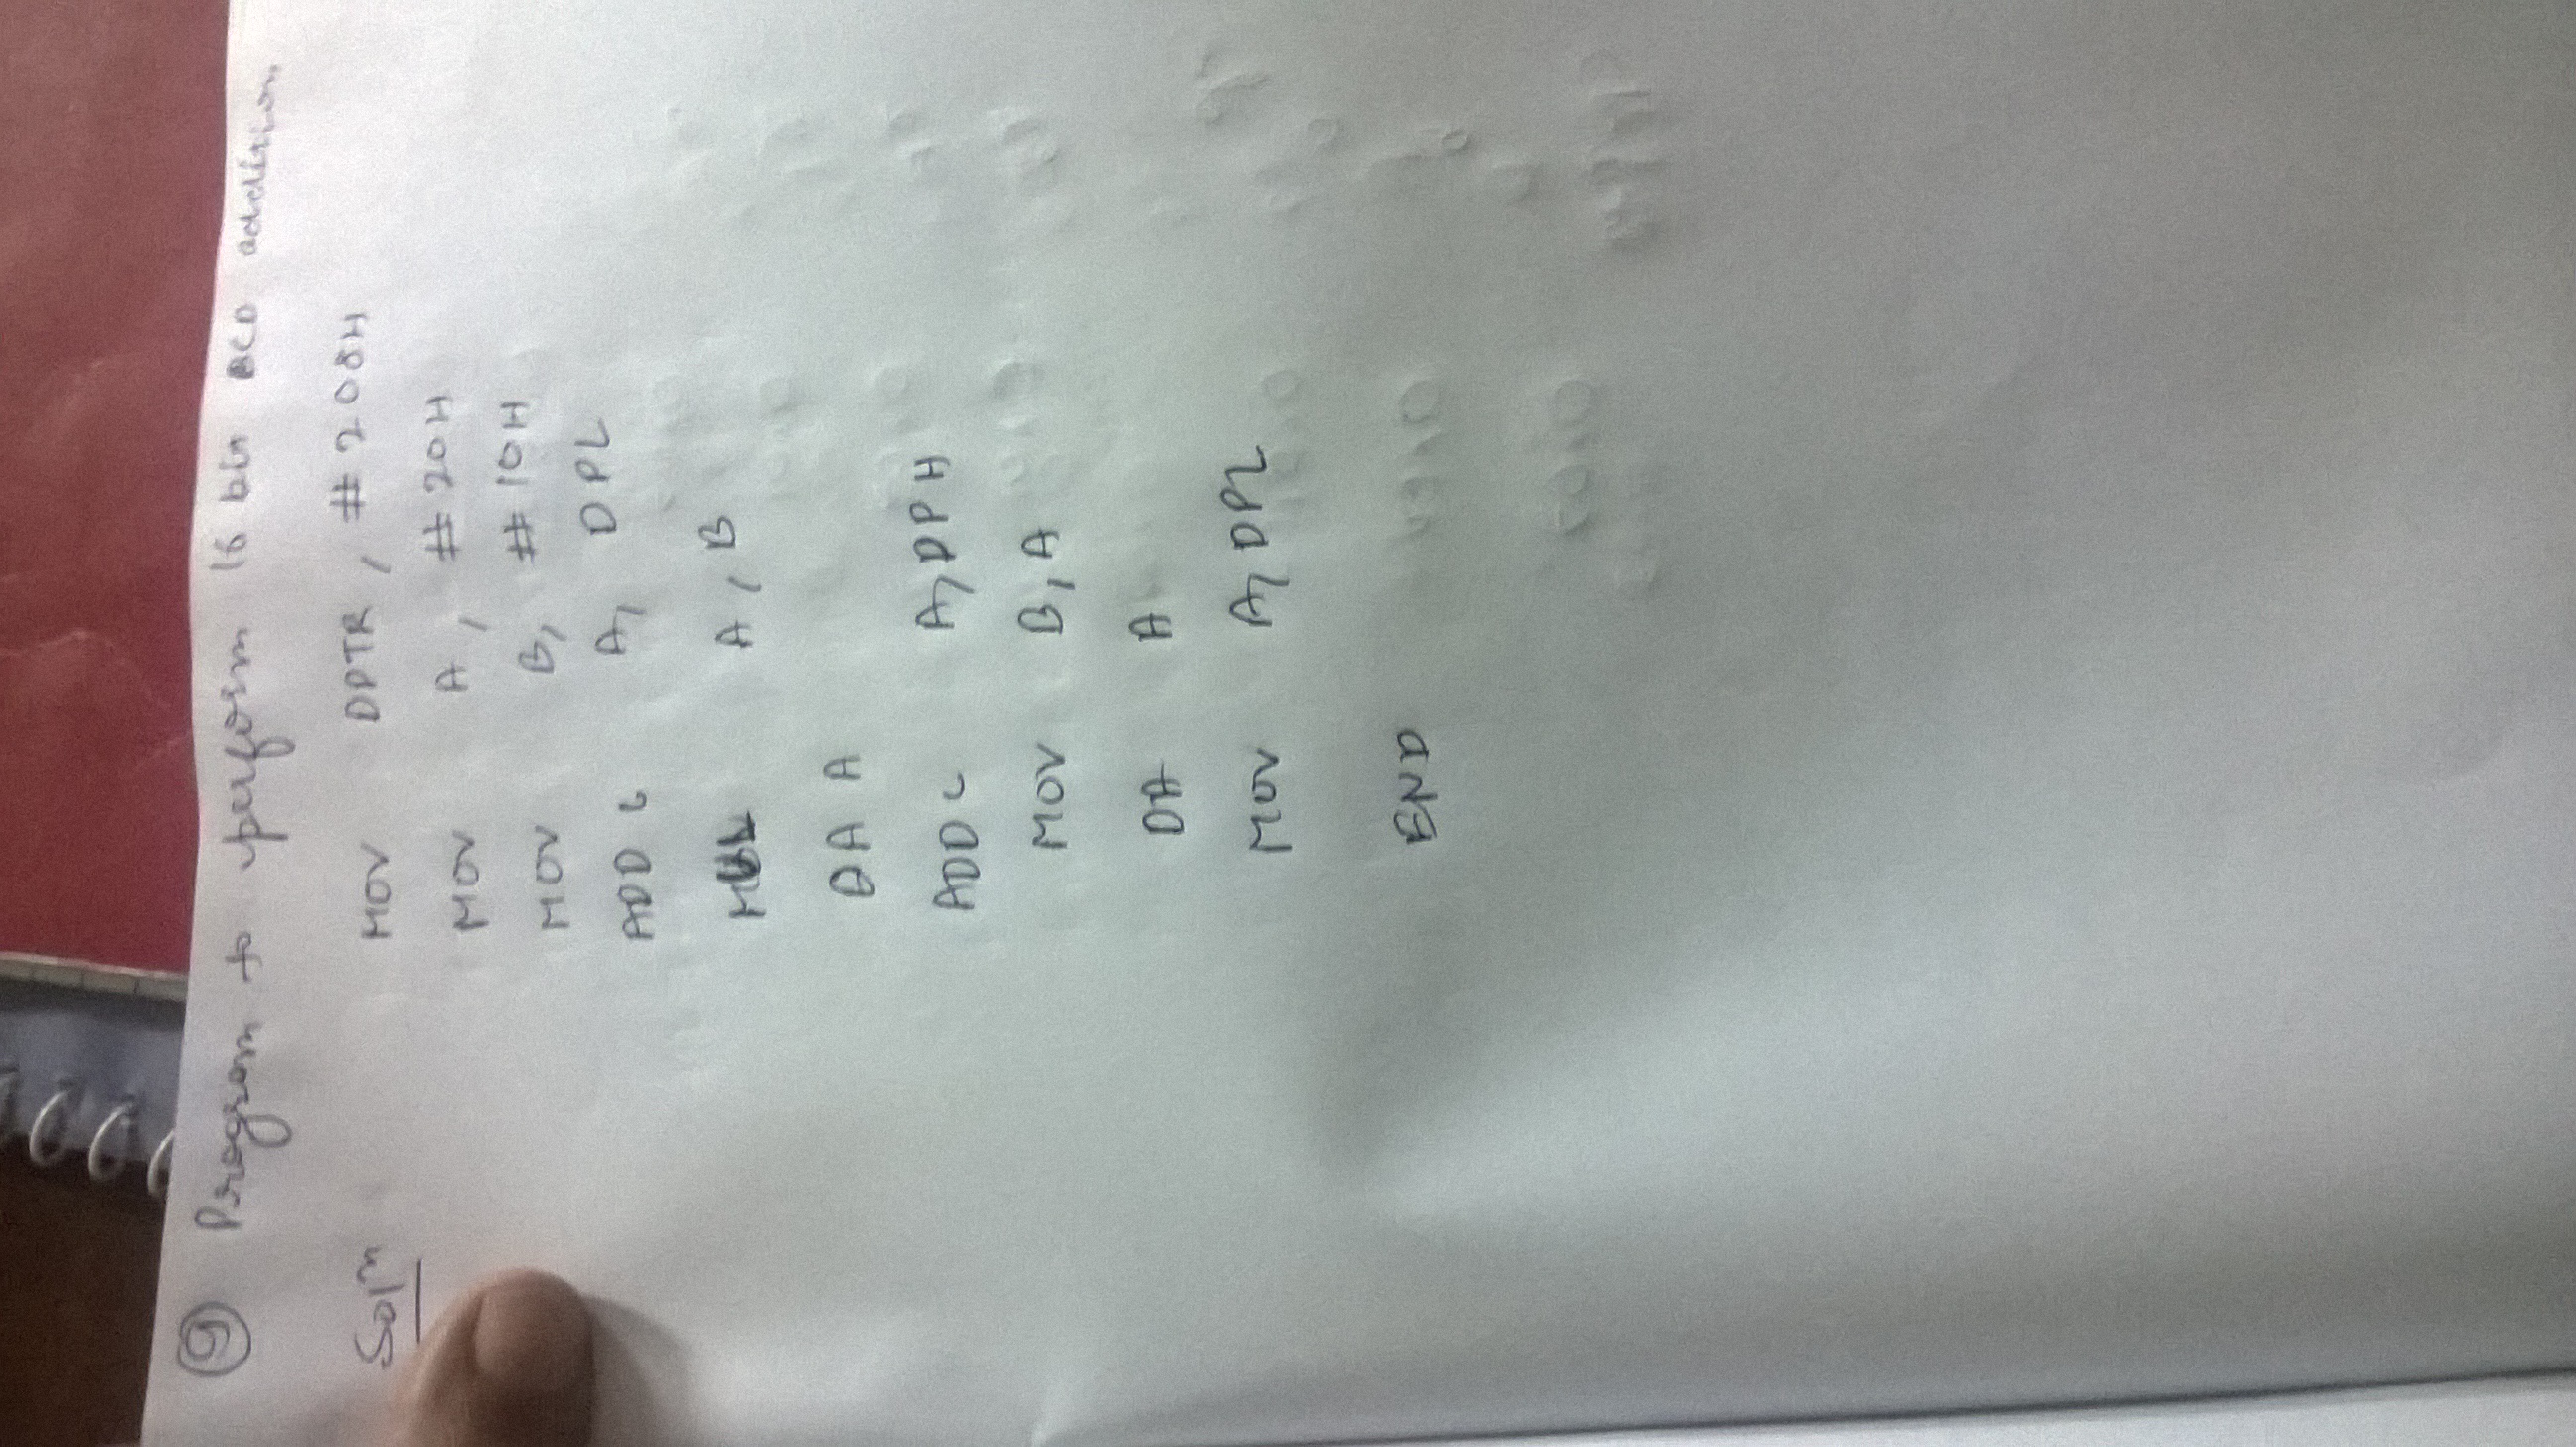 9 Program to perform 16 bit BCD addition
Soln MOV DPTR, #208H
MOV A, #20H
MOV B, #10H
ADD C A, DPL
A, B
DA A
ADD C A, DPH
MOV B, A
DA A
MOV A, DPL
END